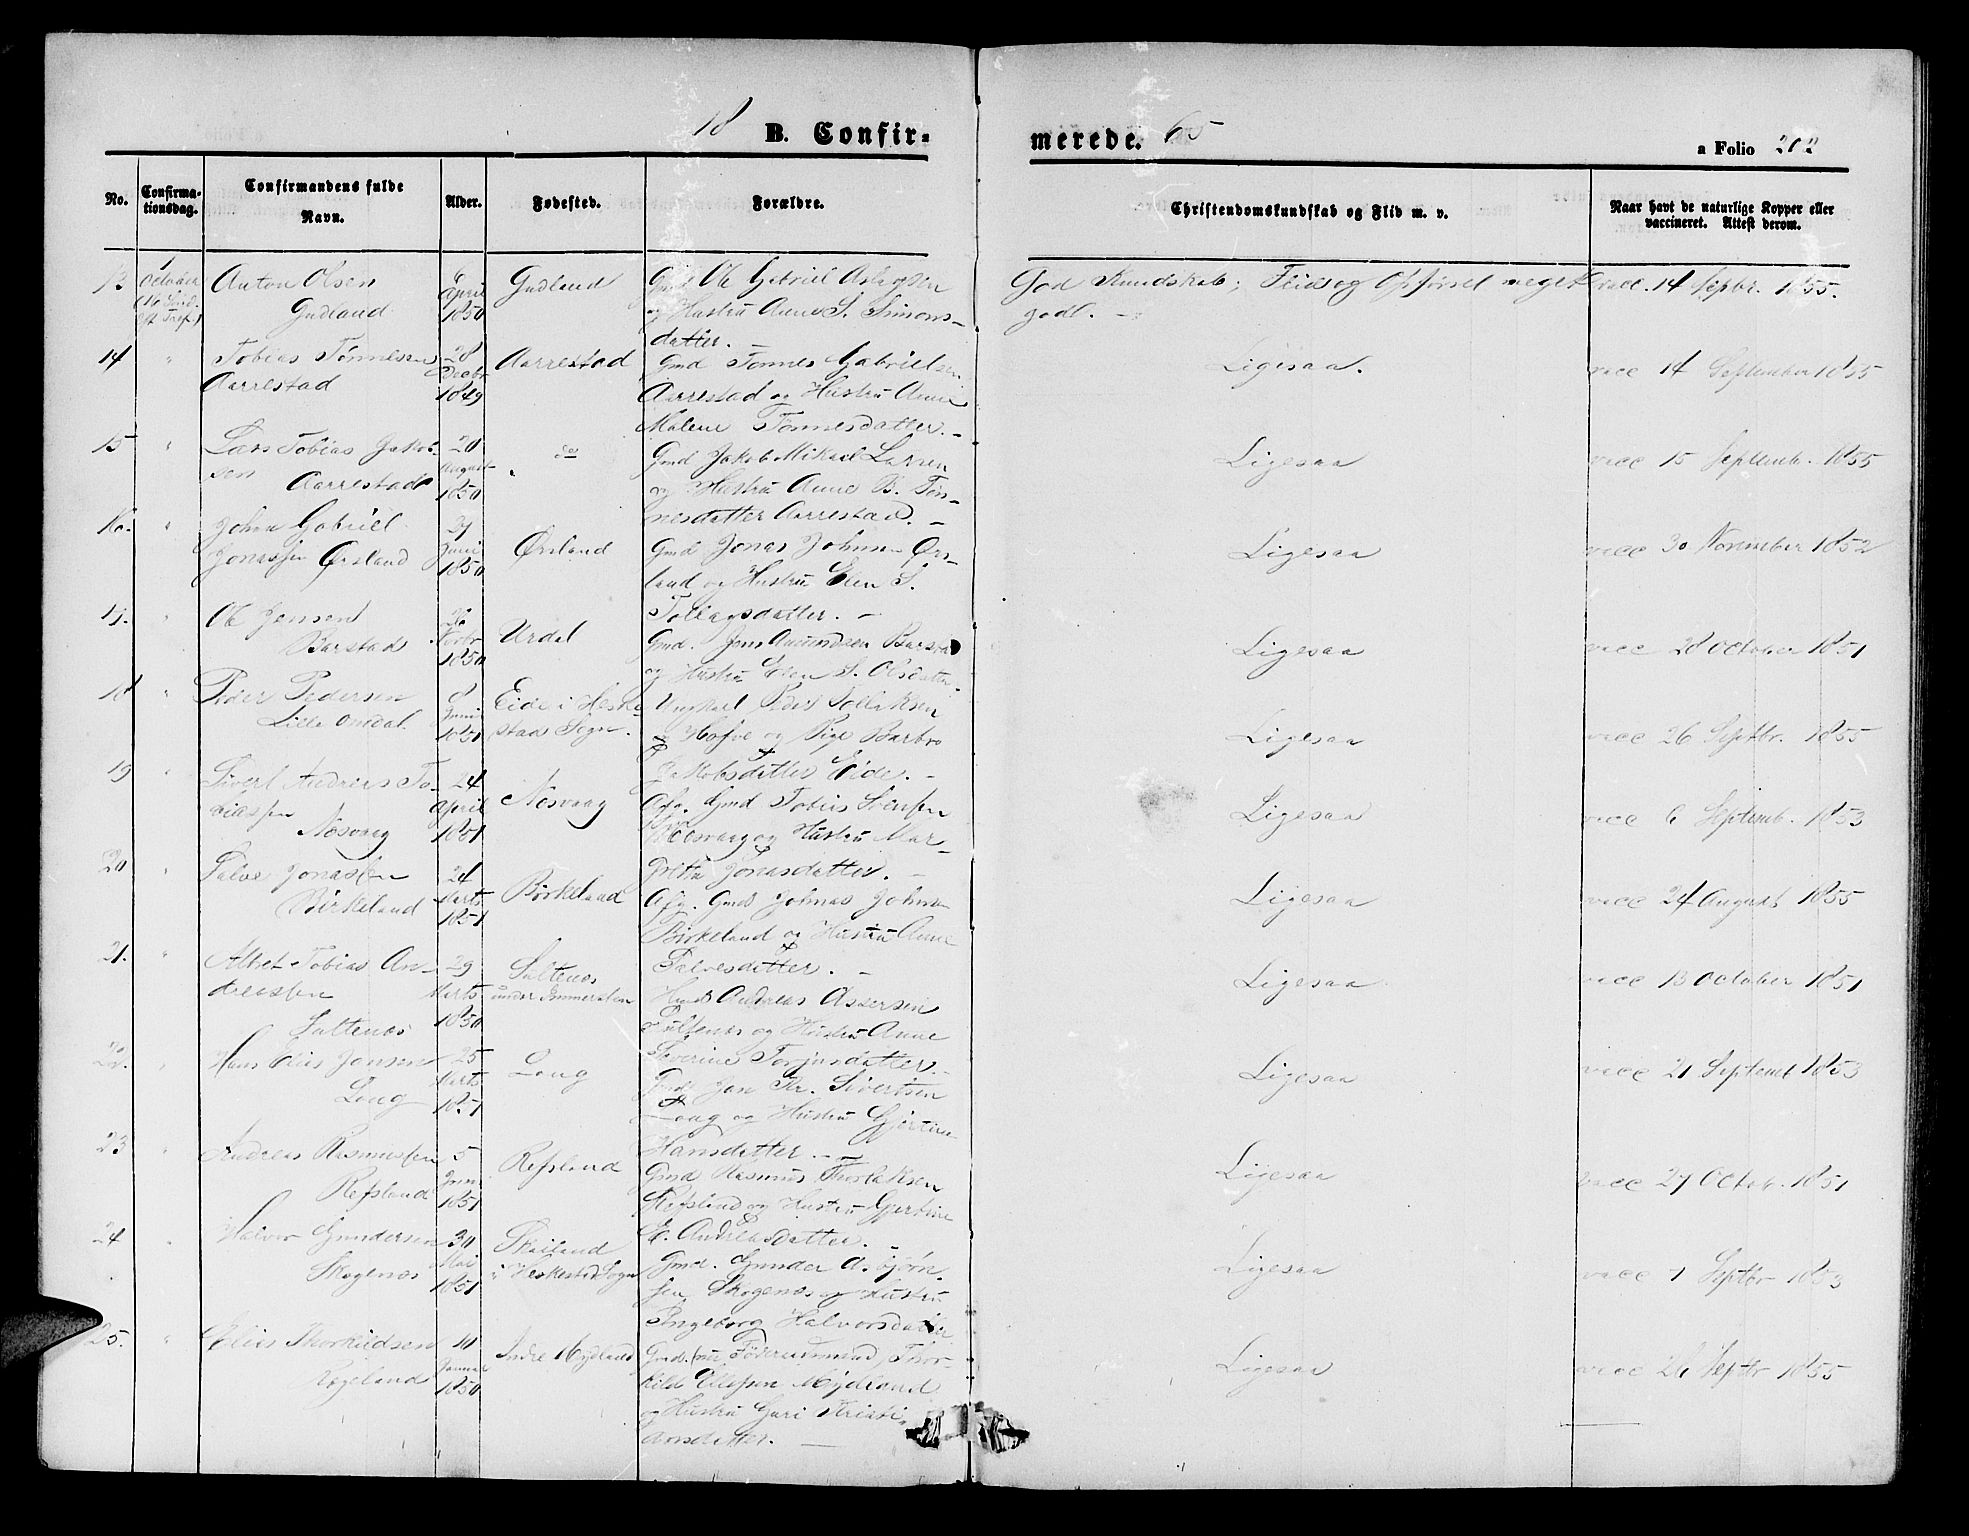 18 B. Confir-
merede. 65
a Folio 202
No.
Confirma-
tionsdag.
Confirmandens fulde
Navn.
Alder.
Fødested.
Forældre.
Christendomskundskab og Flid m. v.
Naar havt de naturlige Kopper eller
vaccineret. Attest derom.
13
1
October
Anton Olsen
Gudland
6
April
1850
Gudland
Gmd Ole Gabriel Aslagsen
og Hustru Anne S. Simons-
datter. —
God Kundskab; Flid og Opførsel meget
godl. —
vacc. 14 Septbr. 1855.
14
"
Tobias Tønnesen
Aarrestad
28
Decbr
1849
Aarrestad
Gmd Tønnes Gabrielsen
Aarrestad og Hustru Anne
Malene Tønnesdatter. —
Ligesaa.
vacc 14 September 1855
15
"
Lars Tobias Jakob-
sen
Aarrestad
20
August
1850
do
Gmd Jakob Mikael Larsen
og Hustru Anne B. Tøn-
nesdatter Aarrestad. —
Ligesaa
vacc 15 Septemb. 1855
16.
"
Johan Gabriel
Jonassen Ørsland
27
Juni
1850
Ørsland
Gmd Jonas Johnsen Ørs-
land og Hustru Elen S.
Tollagsdatter. —
Ligesaa
vacc 30 November 1852
17.
"
Ole Jensen
Barstad
26
Febr
1850
Urdal
Gmd. Jens Amundsen Barstad
og Hustru Elen S. Olsdatter.
Ligesaa
vacc 28 October 1851
18
"
Peder Pedersen
Lille Omdal
8
Juni
1851
Eide i Heske-
stad Sogn.
Ungkarl Peder Tollaksen
Hofve og Pige Barbro
Jakobsdatter Eide. —
Ligesaa
vacc 26 Septbr. 1855
19
"
Sivert Andreas To-
biassen
Nesvaag
24
April
1851
Nesvaag
Afg. Gmd Tobias Svensen
Nesvaag og Hustru Mar-
gretha Jonasdatter. —
Ligesaa
vacc 6 Septemb. 1853
20
"
Salve Jonassen
Birkeland
24
Marts
1851
Birkeland
Afg. Gmd Johnas Johnsen
Birkeland og Hustru Anne
Salvesdatter. —
Ligesaa
vacc 24 August 1855
21.
"
Albret Tobias An-
dreassen
Saltenæs
29
Marts
1850
Saltenæs
under Immersten
Hmd Andreas Assersen
Saltenæs og Hustru Anne
Severine Torjusdatter. —
Ligesaa
vacc 13 October 1851
22.
"
Hans Elias Jansen
Loug
25
Marts
1851
Loug
Gmd Jan Kr. Sivertsen
Loug og Hustru Gjertine
Hansdatter. —
Ligesaa
vacc 21 Septemb 1853
23
"
Andreas Rasmussen
Refsland
5
Juni
1851
Refsland
Gmd Rasmus Thorlaksen
Refsland og Hustru Gjertine
E. Andreasdatter. —
Ligesaa
vacc 27 Octob. 1851
24
"
Halvor Gundersen
Skogenæs
30
Mai
1851
Skailand
i Heskestad Sogn
Gmd. Gunder Asbjørn-
sen Skogenæs og Hustru
Ingeborg Halvorsdatter
Ligesaa
vacc 7 Septbr 1853
25.
"
Elias Thorkildsen
Rogeland
10
Januar
1850
Indre Mydland
Gmd. (nu Føderaadsmand) Thor-
kild Ollefsen Mydland
og Hustru Guri Kristi-
ansdatter. —
Ligesaa
vacc 26 Septbr 1855